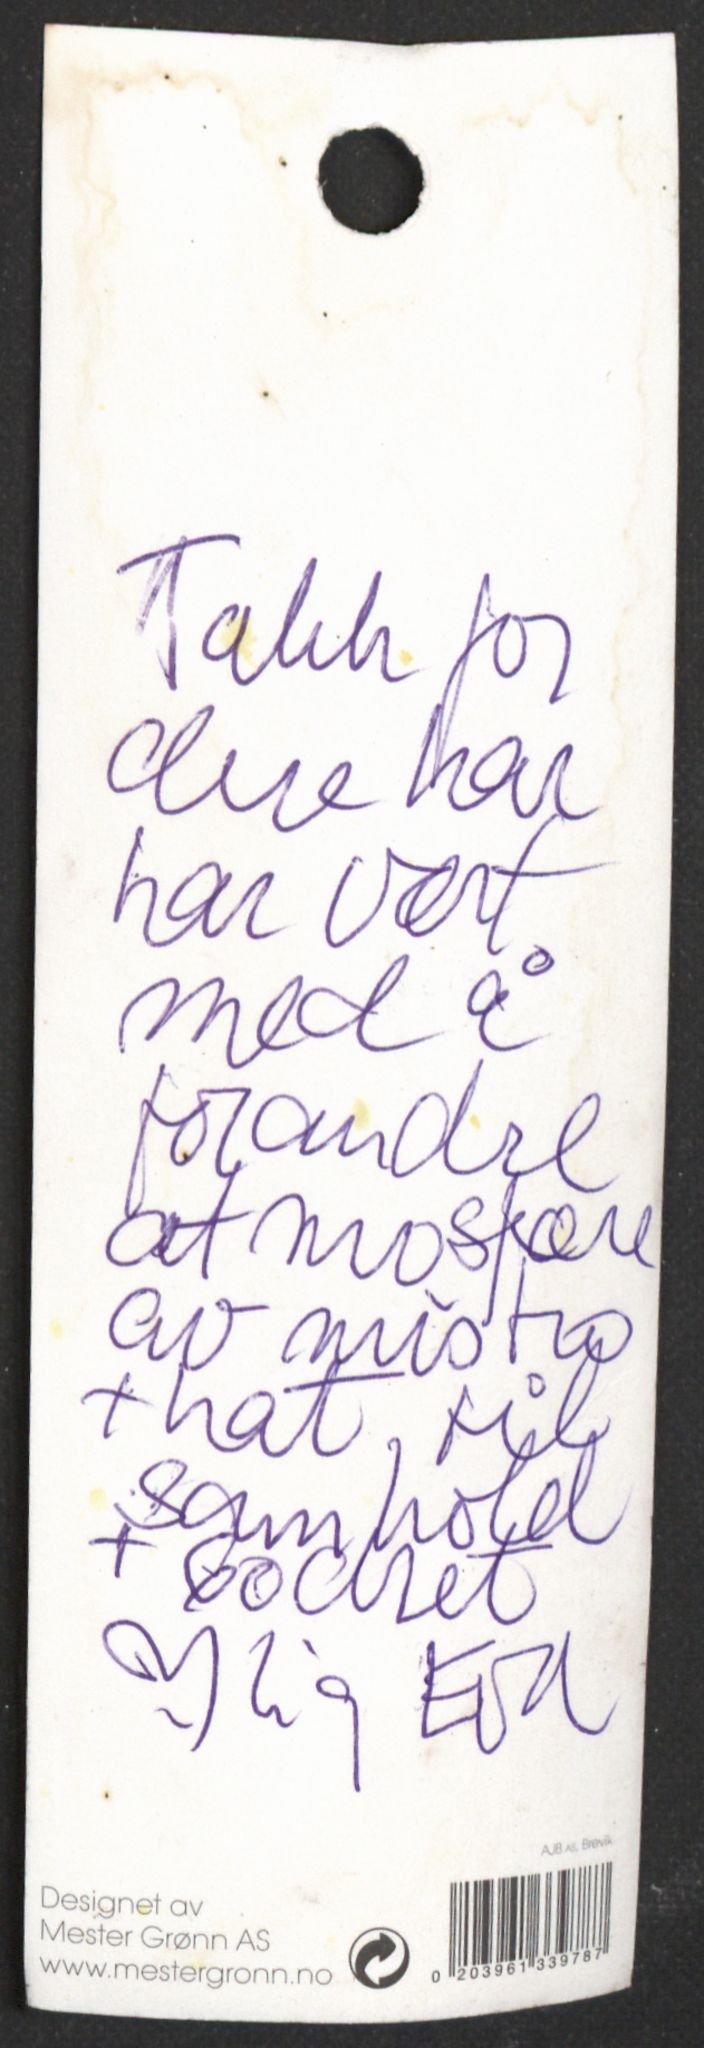 Takk for
dere har
har vært
med å
forandre
atmosfære
av mistro
+ hat, til
samhold
+ godhet
Hilig Eva
AJB AS, Brevik
Designet av
Mester Grønn AS
www.mestergronn.no
0 203961 339787